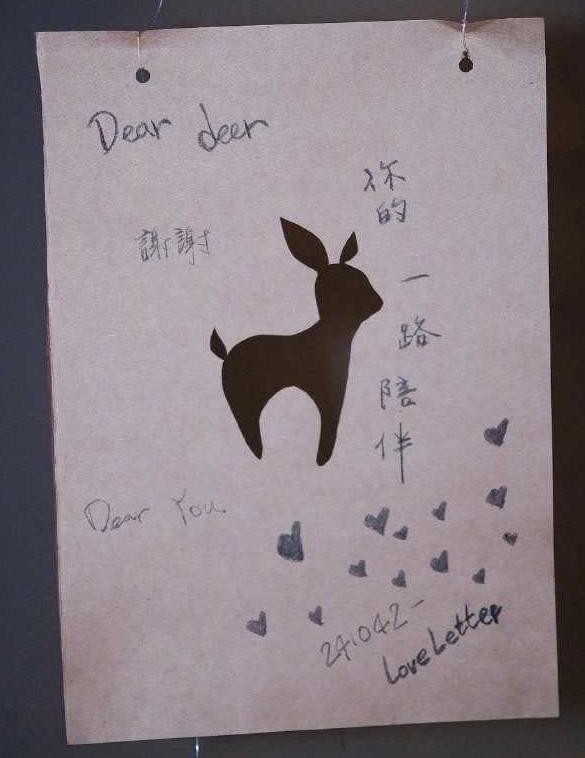 Dear deer
謝謝
你的
一路
陪伴
Dear You.
241042-
Love Letter